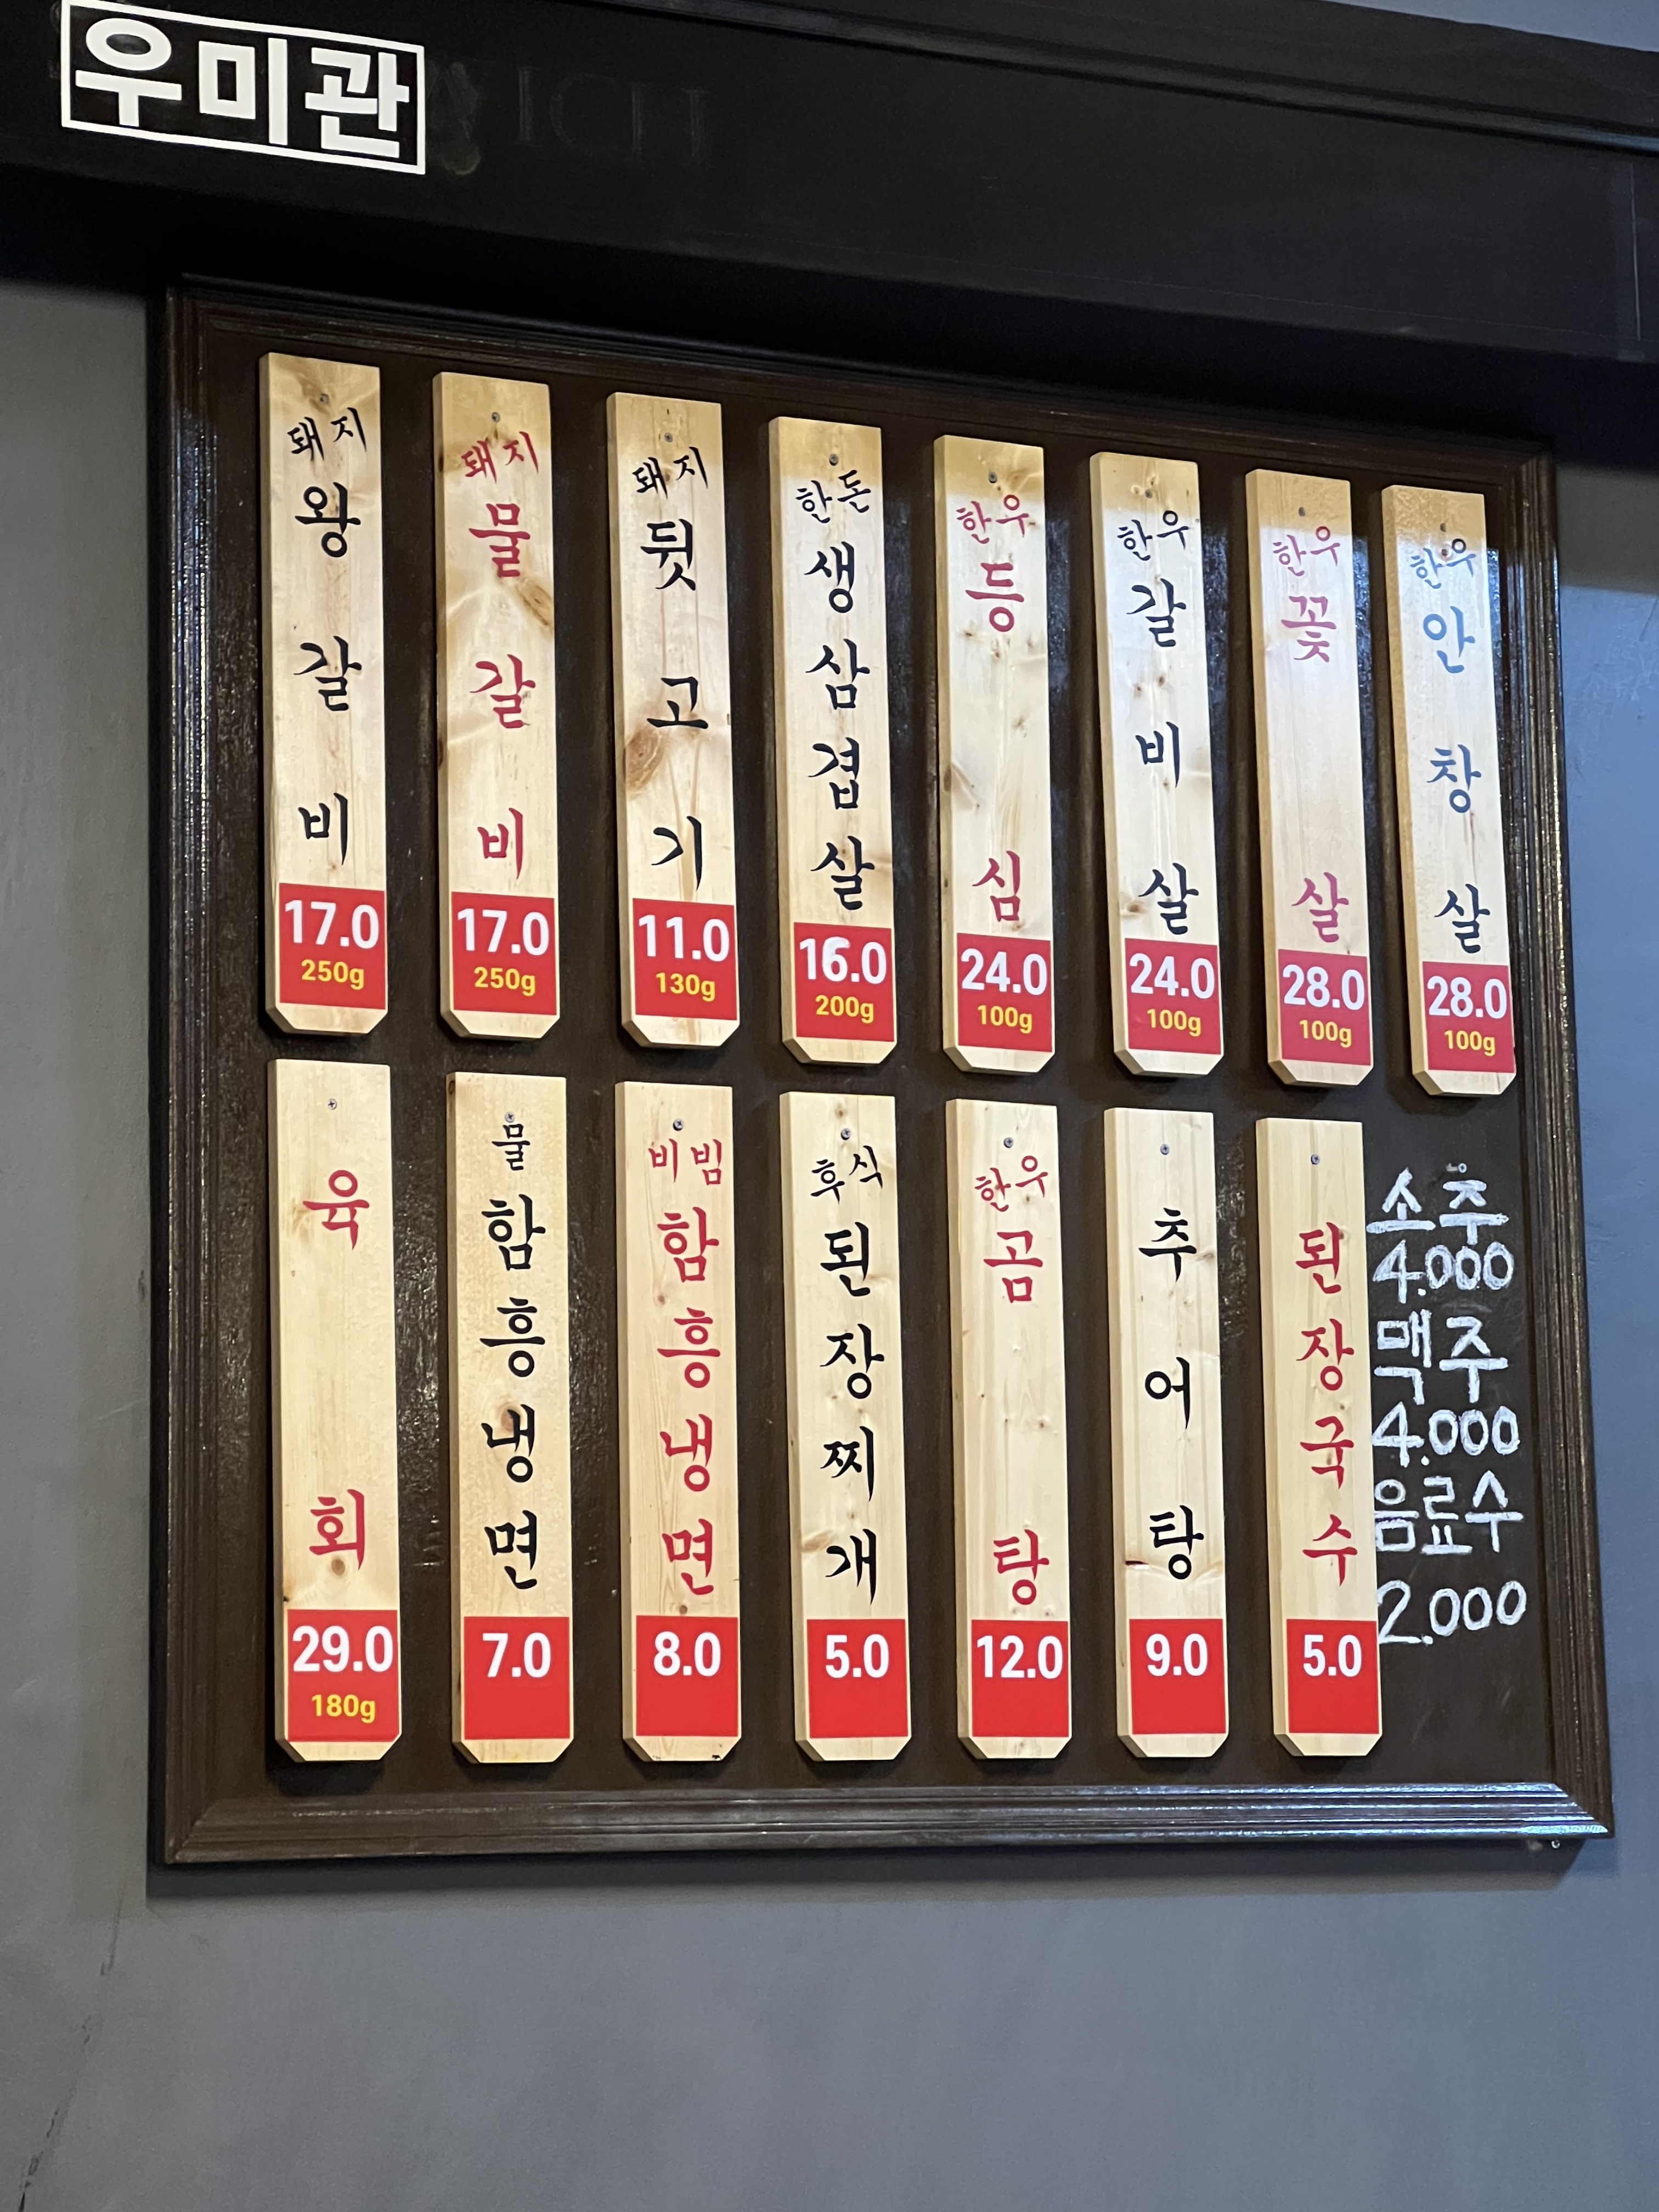 우미관
돼지
왕갈비
17.0
250g
돼지
물갈비
17.0
250g
돼지
뒷고기
11.0
130g
한돈
생삼겹살
16.0
200g
한우
등심
24.0
100g
한우
갈비살
24.0
100g
한우
꽃살
28.0
100g
한우
안창살
28.0
100g
육회
29.0
180g
물
함흥냉면
7.0
비빔
함흥냉면
8.0
후식
된장찌개
5.0
한우
곰탕
12.0
추어탕
9.0
된장국수
5.0
소주
4.000
맥주
4.000
음료수
2.000